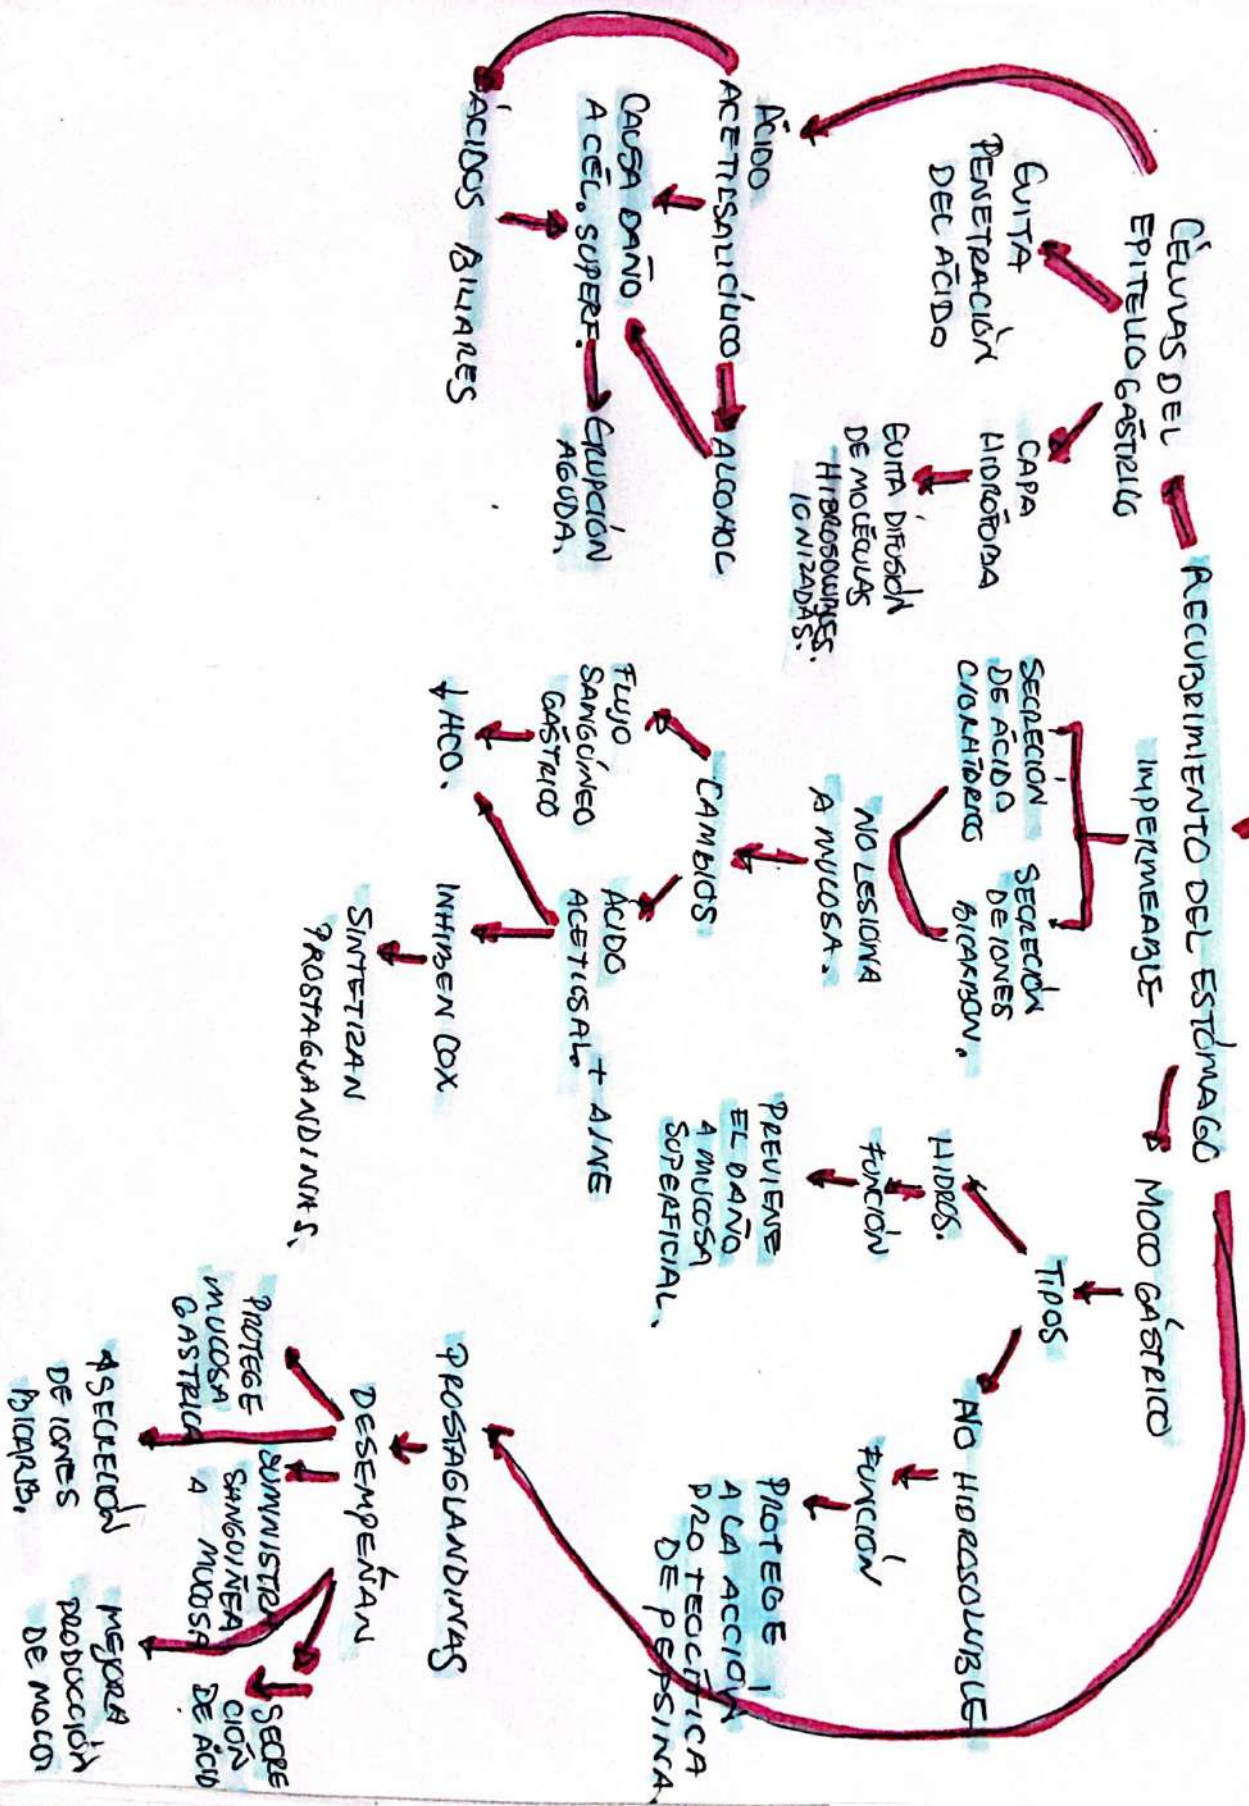 RECUBRIMIENTO DEL ESTÓMAGO
CÉLULAS DEL
EPITELIO GÁSTRICO
EVITA
PENETRACIÓN
DEL ÁCIDO
CAPA
HIDRÓFOBA
EVITA DIFUSIÓN
DE MOLÉCULAS
HIDROSOLUBLES.
IONIZADAS.
ÁCIDO
ACETILSALICÍLICO
ALCOHOL
CAUSA DAÑO
A CÉL. SUPERF.
ERUPCIÓN
AGUDA.
ÁCIDOS BILIARES
IMPERMEABLE
SECRECIÓN
DE ÁCIDO
CLORHÍDRICO
SECRECIÓN
DE IONES
BICARBON.
NO LESIONA
A MUCOSA.
CAMBIOS
FLUJO
SANGUÍNEO
GÁSTRICO
↓HCO.
ÁCIDO
ACETILSAL. + AINE
INHIBEN COX
SINTETIZAN
PROSTAGLANDINAS.
MOCO GÁSTRICO
TIPOS
HIDROS.
FUNCIÓN
PREVIENE
EL DAÑO
A MUCOSA
SUPERFICIAL.
NO HIDROSOLUBLE
FUNCIÓN
PROTEGE
A LA ACCIÓN
PROTEOLÍTICA
DE PEPSINA.
PROSTAGLANDINAS
DESEMPEÑAN
PROTEGE
MUCOSA
GASTRICA
SECRECIÓN
DE IONES
BICARB.
SUMINISTR
SANGUINEA
A MUCOSA
MEJORA
PRODUCCIÓN
DE MOCO
SECRE
CIÓN
DE ÁCID